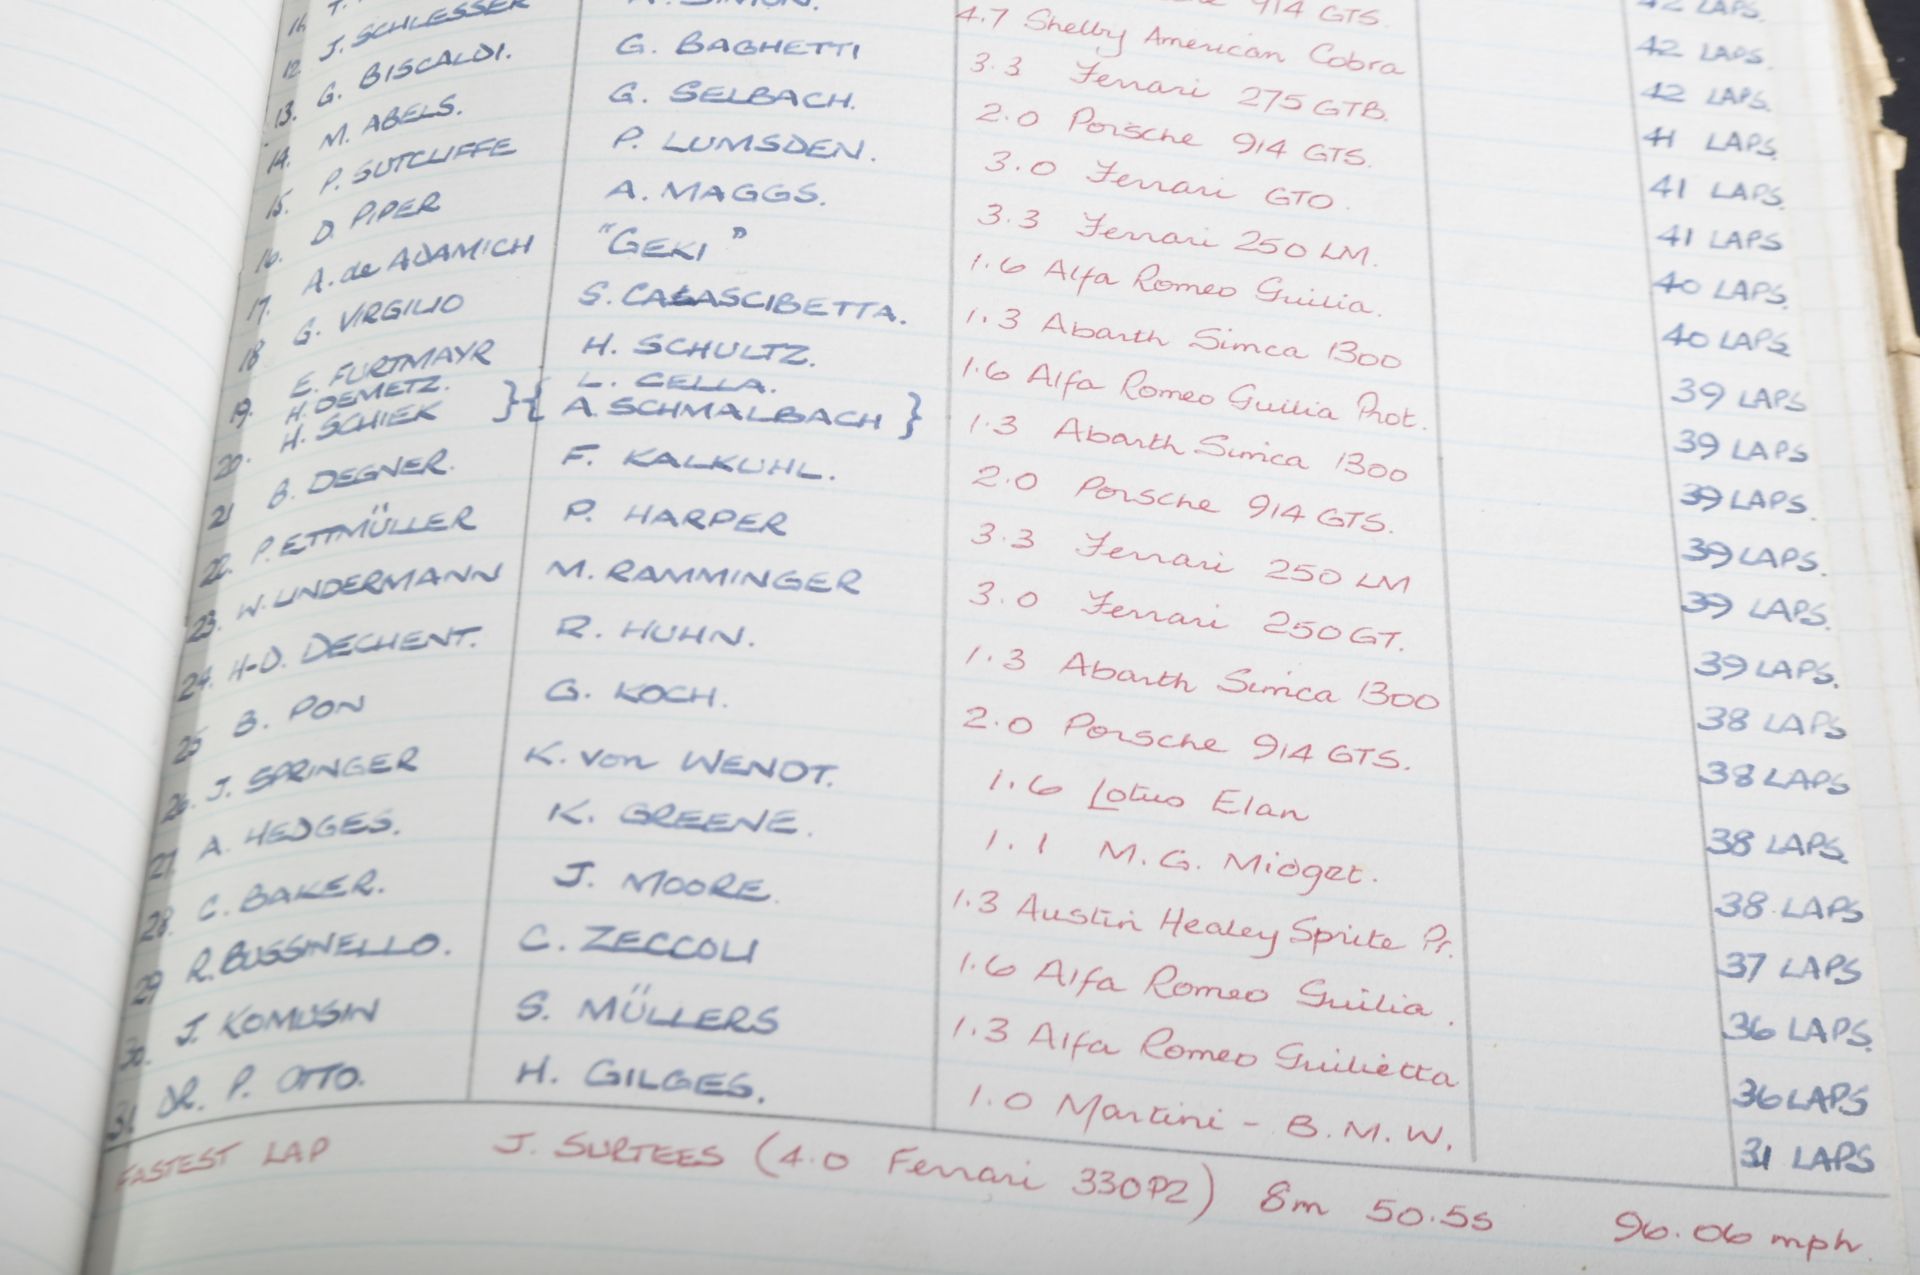 914 GTS. 42 LAPS.
12. J. SCHLESSER A. SIMON. 4.7 Shelby American Cobra 42 LAPS.
13. G. BISCALDI. G. BAGHETTI 3.3 Ferrari 275 GTB. 42 LAPS.
14. M. ABELS. G. SELBACH. 2.0 Porsche 914 GTS. 41 LAPS.
15. P. SUTCLIFFE P. LUMSDEN. 3.0 Ferrari GTO. 41 LAPS.
16. D. PIPER A. MAGGS. 3.3 Ferrari 250 LM. 41 LAPS
17. A. de ADAMICH "GEKI" 1.6 Alfa Romeo Guilia. 40 LAPS.
18 G. VIRGILIO S. CALASCIBETTA. 1.3 Abarth Simca 1300 40 LAPS
19. E. FURTMAYR H. SCHULTZ. 1.6 Alfa Romeo Guilia Prot. 39 LAPS
20. H. DEMETZ. H. SCHIEK }{ L. CELLA. A. SCHMALBACH } 1.3 Abarth Simca 1300 39 LAPS
21 B. DEGNER. F. KALKUHL. 2.0 Porsche 914 GTS. 39 LAPS.
22. P. ETTMÜLLER P. HARPER 3.3 Ferrari 250 LM 39 LAPS.
23. W. LINDERMANN M. RAMMINGER 3.0 Ferrari 250 GT. 39 LAPS.
24. H-D. DECHENT. R. HUHN. 1.3 Abarth Simca 1300 39 LAPS.
25 B. PON G. KOCH. 2.0 Porsche 914 GTS. 38 LAPS
26. J. SPRINGER K. von WENDT. 1.6 Lotus Elan 38 LAPS
27 A. HEDGES. K. GREENE. 1.1 M.G. Midget. 38 LAPS.
28. C. BAKER. J. MOORE. 1.3 Austin Healey Sprite Pr. 38 LAPS
29 R. BUSSINELLO. C. ZECCOLI 1.6 Alfa Romeo Guilia. 37 LAPS
30. J. KOMUSIN S. MÜLLERS 1.3 Alfa Romeo Guilietta 36 LAPS.
31 DR. P. OTTO. H. GILGES. 1.0 Martini - B.M.W. 36 LAPS
31 LAPS
FASTEST LAP J. SURTEES (4.0 Ferrari 330P2) 8m 50.5s 96.06 mph.